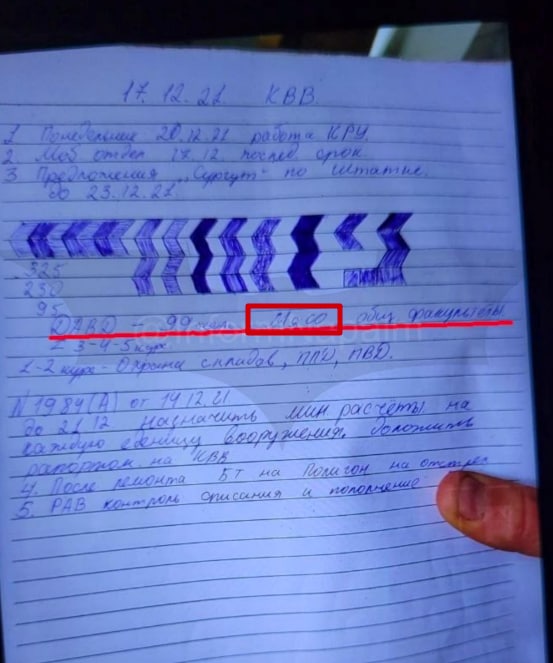 17.12.21. КВВ.
1 Понедельник 20.12.21 работа КРУ.
2. Моб отдел 17.12 послед. срок
3 Предложения „Сургут" по штатке.
до 23.12.21.
325
230
95
- 99 чел. 21 00 общ. факультеты
2-3-4-5 курс
1-2 курс - Охрана складов, ППД, ПВД.
N1984(А) от 14.12.21
до 21.12 назначить мин расчёты на
каждую единицу вооружения. Доложить
рапортом на КВВ
4. После ремонта БТ на Полигон на отстрел
5. РАВ контроль описания и пополнение